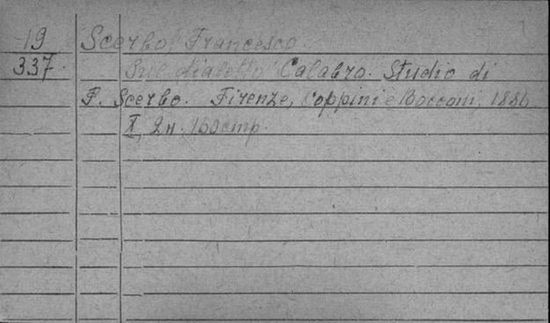 19 Scerbo, Francesco
337. Sul dialetto Calabro. Studio di
F. Scerbo. Firenze, Coppini e Bocconi, 1886
X, 2н. 160 стр.